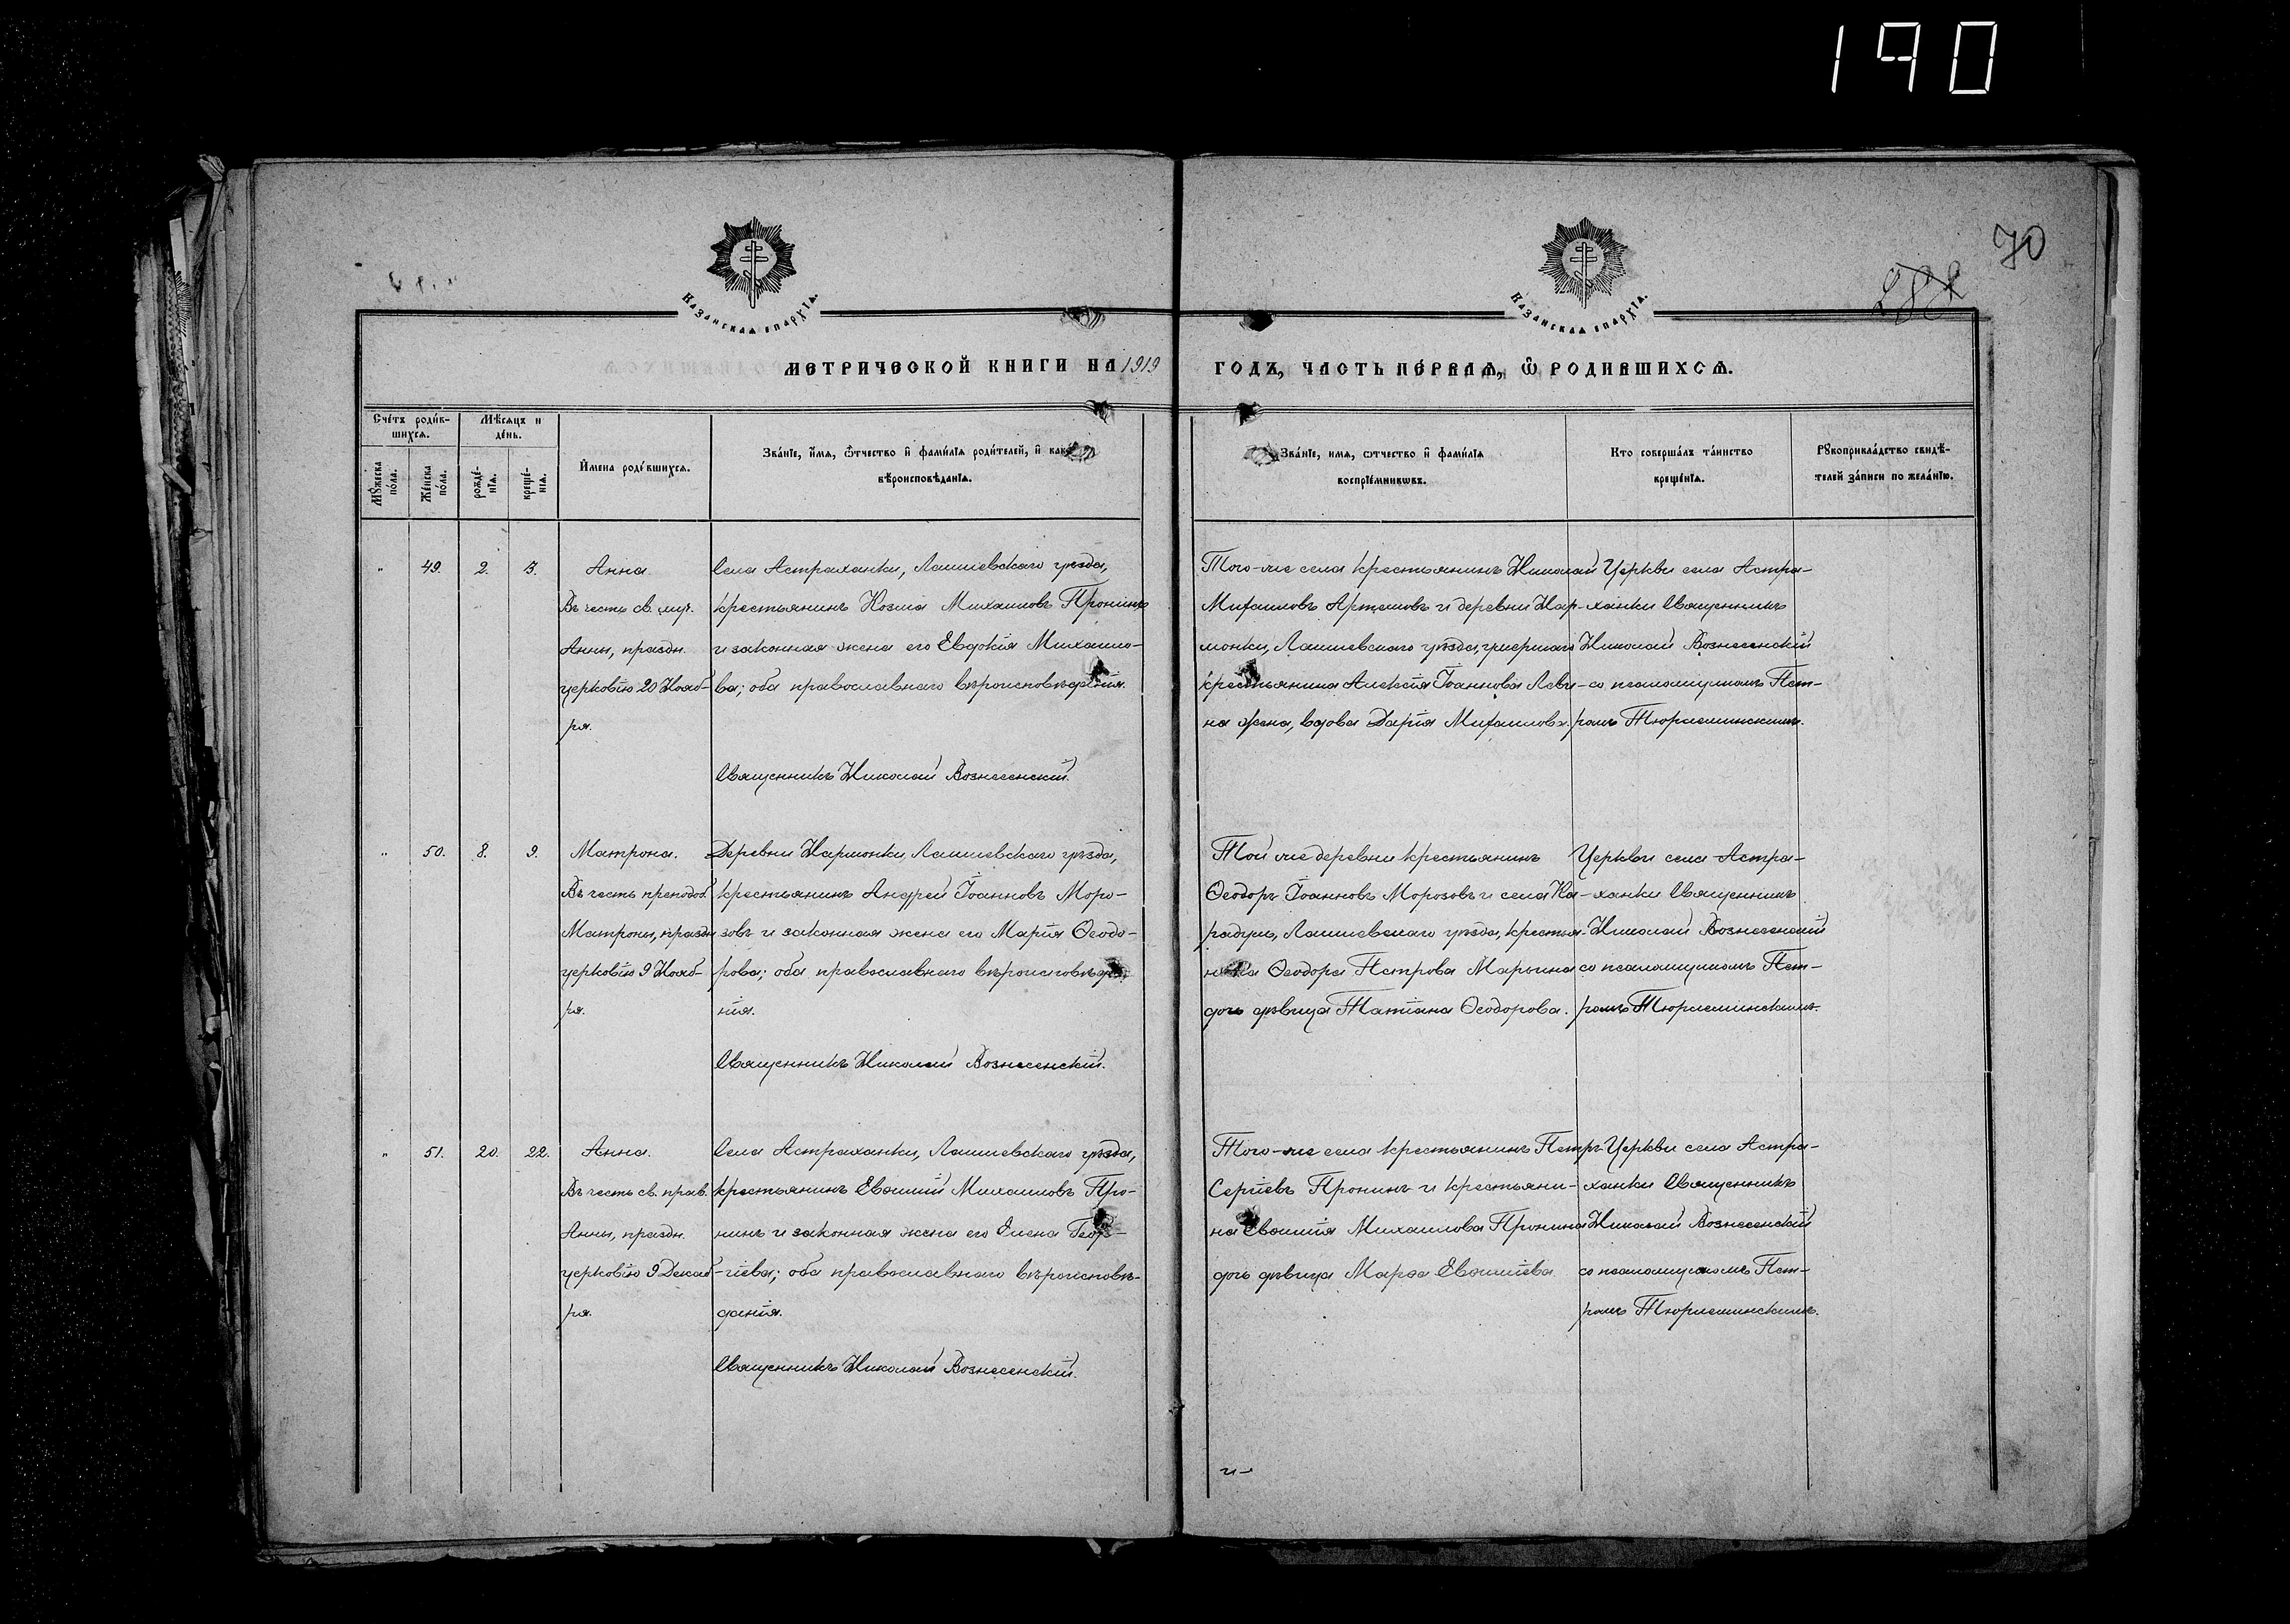 190
70
288
КАЗАНСКАЯ ЕПАРХІЯ.
КАЗАНСКАЯ ЕПАРХІЯ.
МЕТРИЧЕСКОЙ КНИГИ НА 1919 ГОДЪ, ЧАСТЬ ПЕ́РВАѦ, Ѽ РОДИВШИХСѦ.
Сче́тъ роди́в-
шихсѧ.
Мѣсѧцъ и
де́нь.
Мꙋ́жеска
по́ла.
Же́нска
по́ла.
рожде́-
нїѧ.
креще́-
нїѧ.
И́мена роди́вшихсѧ.
Зва́нїе, и́мѧ, ѻ҆́тчество и҆ фами́лїѧ роди́телей, и҆ како́
вѣроисповѣданїѧ.
Зва́нїе, имѧ, ѻтчество и҆ фами́лїѧ
воспрїе́мникѡвъ.
Кто соверша́лъ та́инство
креще́нїѧ.
Рꙋкоприкла́дство свидѣ́-
телей за́писи по жела́нїю.
" 49. 2. 3. Анна.
Въ честь св. муч.
Анны, праздн.
церковію 20 Нояб-
ря.
Села Астраханки, Лаишевскаго уѣзда,
крестьянинъ Козма Михаиловъ Пронинъ
и законная жена его Евдокія Михаило-
ва; оба православнаго вѣроисповѣданія.
Священникъ Николай Вознесенскій.
Того-же села крестьянинъ Николай
Михаиловъ Артемовъ и деревни Нар-
монки, Лаишевскаго уѣзда, умершаго
крестьянина Алексія Іоаннова Леви-
на жена, вдова Дарія Михаилова.
Церкви села Астра-
ханки Священникъ
Николай Вознесенскій
со псаломщикомъ Пет-
ромъ Тюрнеминскимъ.
" 50. 8. 9. Матрона.
Въ честь преподоб.
Матроны, праздн.
церковію 9 Нояб-
ря.
Деревни Нармонки, Лаишевскаго уѣзда,
крестьянинъ Андрей Іоанновъ Моро-
зовъ и законная жена его Марія Ѳеодо-
рова; оба православнаго вѣроисповѣда-
нія.
Священникъ Николай Вознесенскій.
Той же деревни крестьянинъ
Ѳеодоръ Іоанновъ Морозовъ и села Ка-
радули, Лаишевскаго уѣзда, крестья-
нина Ѳеодора Петрова Марьина
дочь дѣвица Татіана Ѳеодорова.
Церкви села Астра-
ханки Священникъ
Николай Вознесенскій
со псаломщикомъ Пет-
ромъ Тюрнеминскимъ.
" 51. 20. 22. Анна.
Въ честь св. прав.
Анны, праздн.
церковію 9 Декаб-
ря.
Села Астраханки, Лаишевскаго уѣзда,
крестьянинъ Евѳимій Михаиловъ Про-
нинъ и законная жена его Елена Геор-
гіева; оба православнаго вѣроисповѣ-
данія.
Священникъ Николай Вознесенскій.
Того-же села крестьянинъ Петръ
Сергіевъ Пронинъ и крестьяни-
на Евѳимія Михаилова Пронина
дочь дѣвица Марѳа Евѳиміева.
Церкви села Астра-
ханки Священникъ
Николай Вознесенскій
со псаломщикомъ Пет-
ромъ Тюрнеминскимъ.